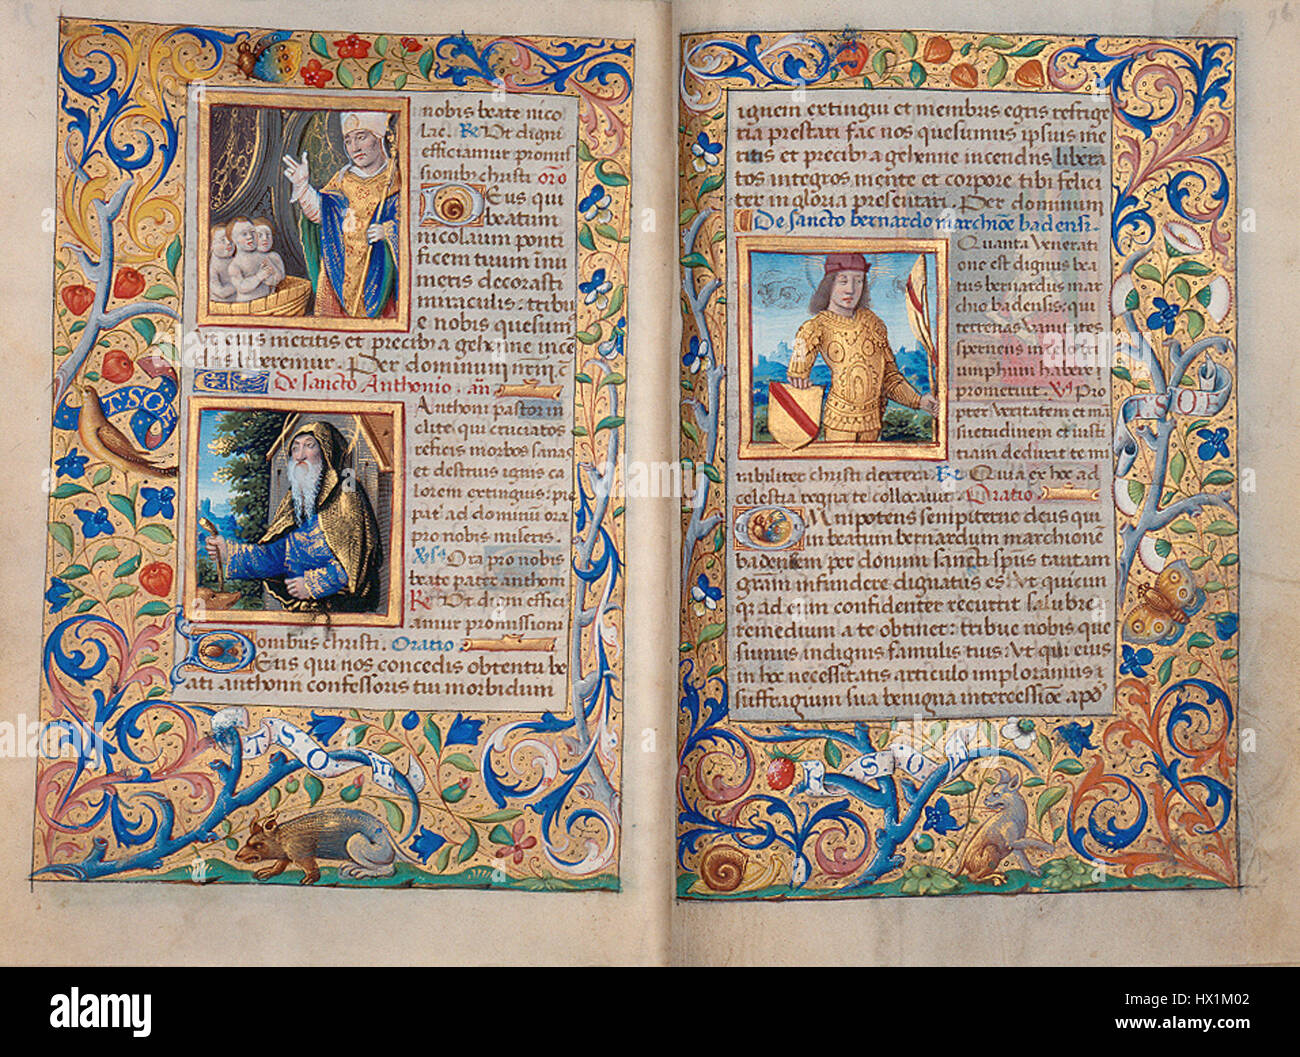 nobis beate nico
lae. Re Ut digni
efficiamur promis
sionibus christi oro
Deus qui
beatum
nicolaum ponti
ficem tuum innu
meris decorasti
miraculis: tribu
e nobis quesum
ut eius meritis et precibus a gehenne incen
diis liberemur. Per dominum
De sancto Anthonio. an
Anthoni pastor in
clite qui cruciatos
reficis morbos sanas
et destruis ignis ca
lorem extinguis: pie
pater ad dominum ora
pro nobis miseris.
Ora pro nobis
beate pater anthoni
Re Ut digni effici
amur promissioni
onibus christi. Oratio
Deus qui nos concedis obtentu be
ati anthonii confessoris tui morbidum
TSOE
TSOT
ignem extingui et membris egris refrige
ria prestari fac nos quesumus ipsius me
ritis et precibus a gehenne incendiis libera
tos integros mente et corpore tibi felici
ter in gloria presentari. Per dominum
De sancto bernardo marchioe badensi.
Quanta venerati
one est dignus bea
tus bernardus mar
chio badensis: qui
terrenas vanitates
spernens in celo tri
umphum habere
prometuit. Pro
pter veritatem et man
suetudinem et iusti
tiam deducit te mi
rabiliter christi dextera. Re Quia ex hoc ad
celestia regna te collocavit. Oratio
Omnipotens sempiterne deus qui
in beatum bernardum marchione
badensem per donum sancti spus tantam
gram infundere dignatus es: ut quicun
que ad eum confidenter recurrit salubre
remedium a te obtinet: tribue nobis que
sumus indignis famulis tuis: ut qui eius
in hoc necessitatis articulo imploramus
suffragium sua benigna intercessioe
TSOT
alamy
HX1M02
www.alamy.com